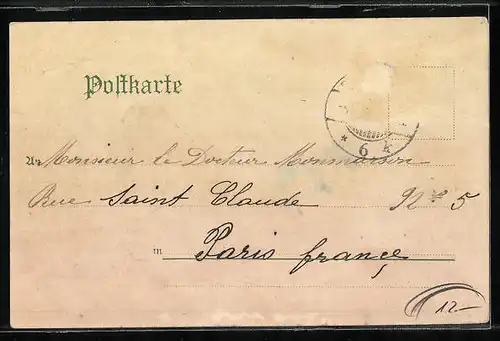 Postkarte
* 6 k
An Monsieur le Docteur Monmarson
Rue Saint Claude No 5
in Paris france
12-